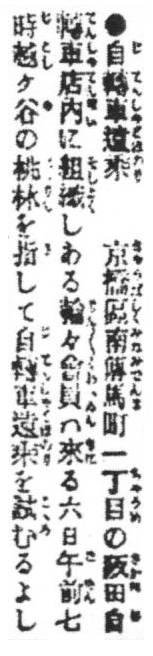 ●自轉車遠乘 京橋區南傳馬町一丁目の阪田自
轉車店內に組織しある輪々會員ハ來る六日午前七
時越ヶ谷の桃林を指して自轉車遠乘を試むるよし